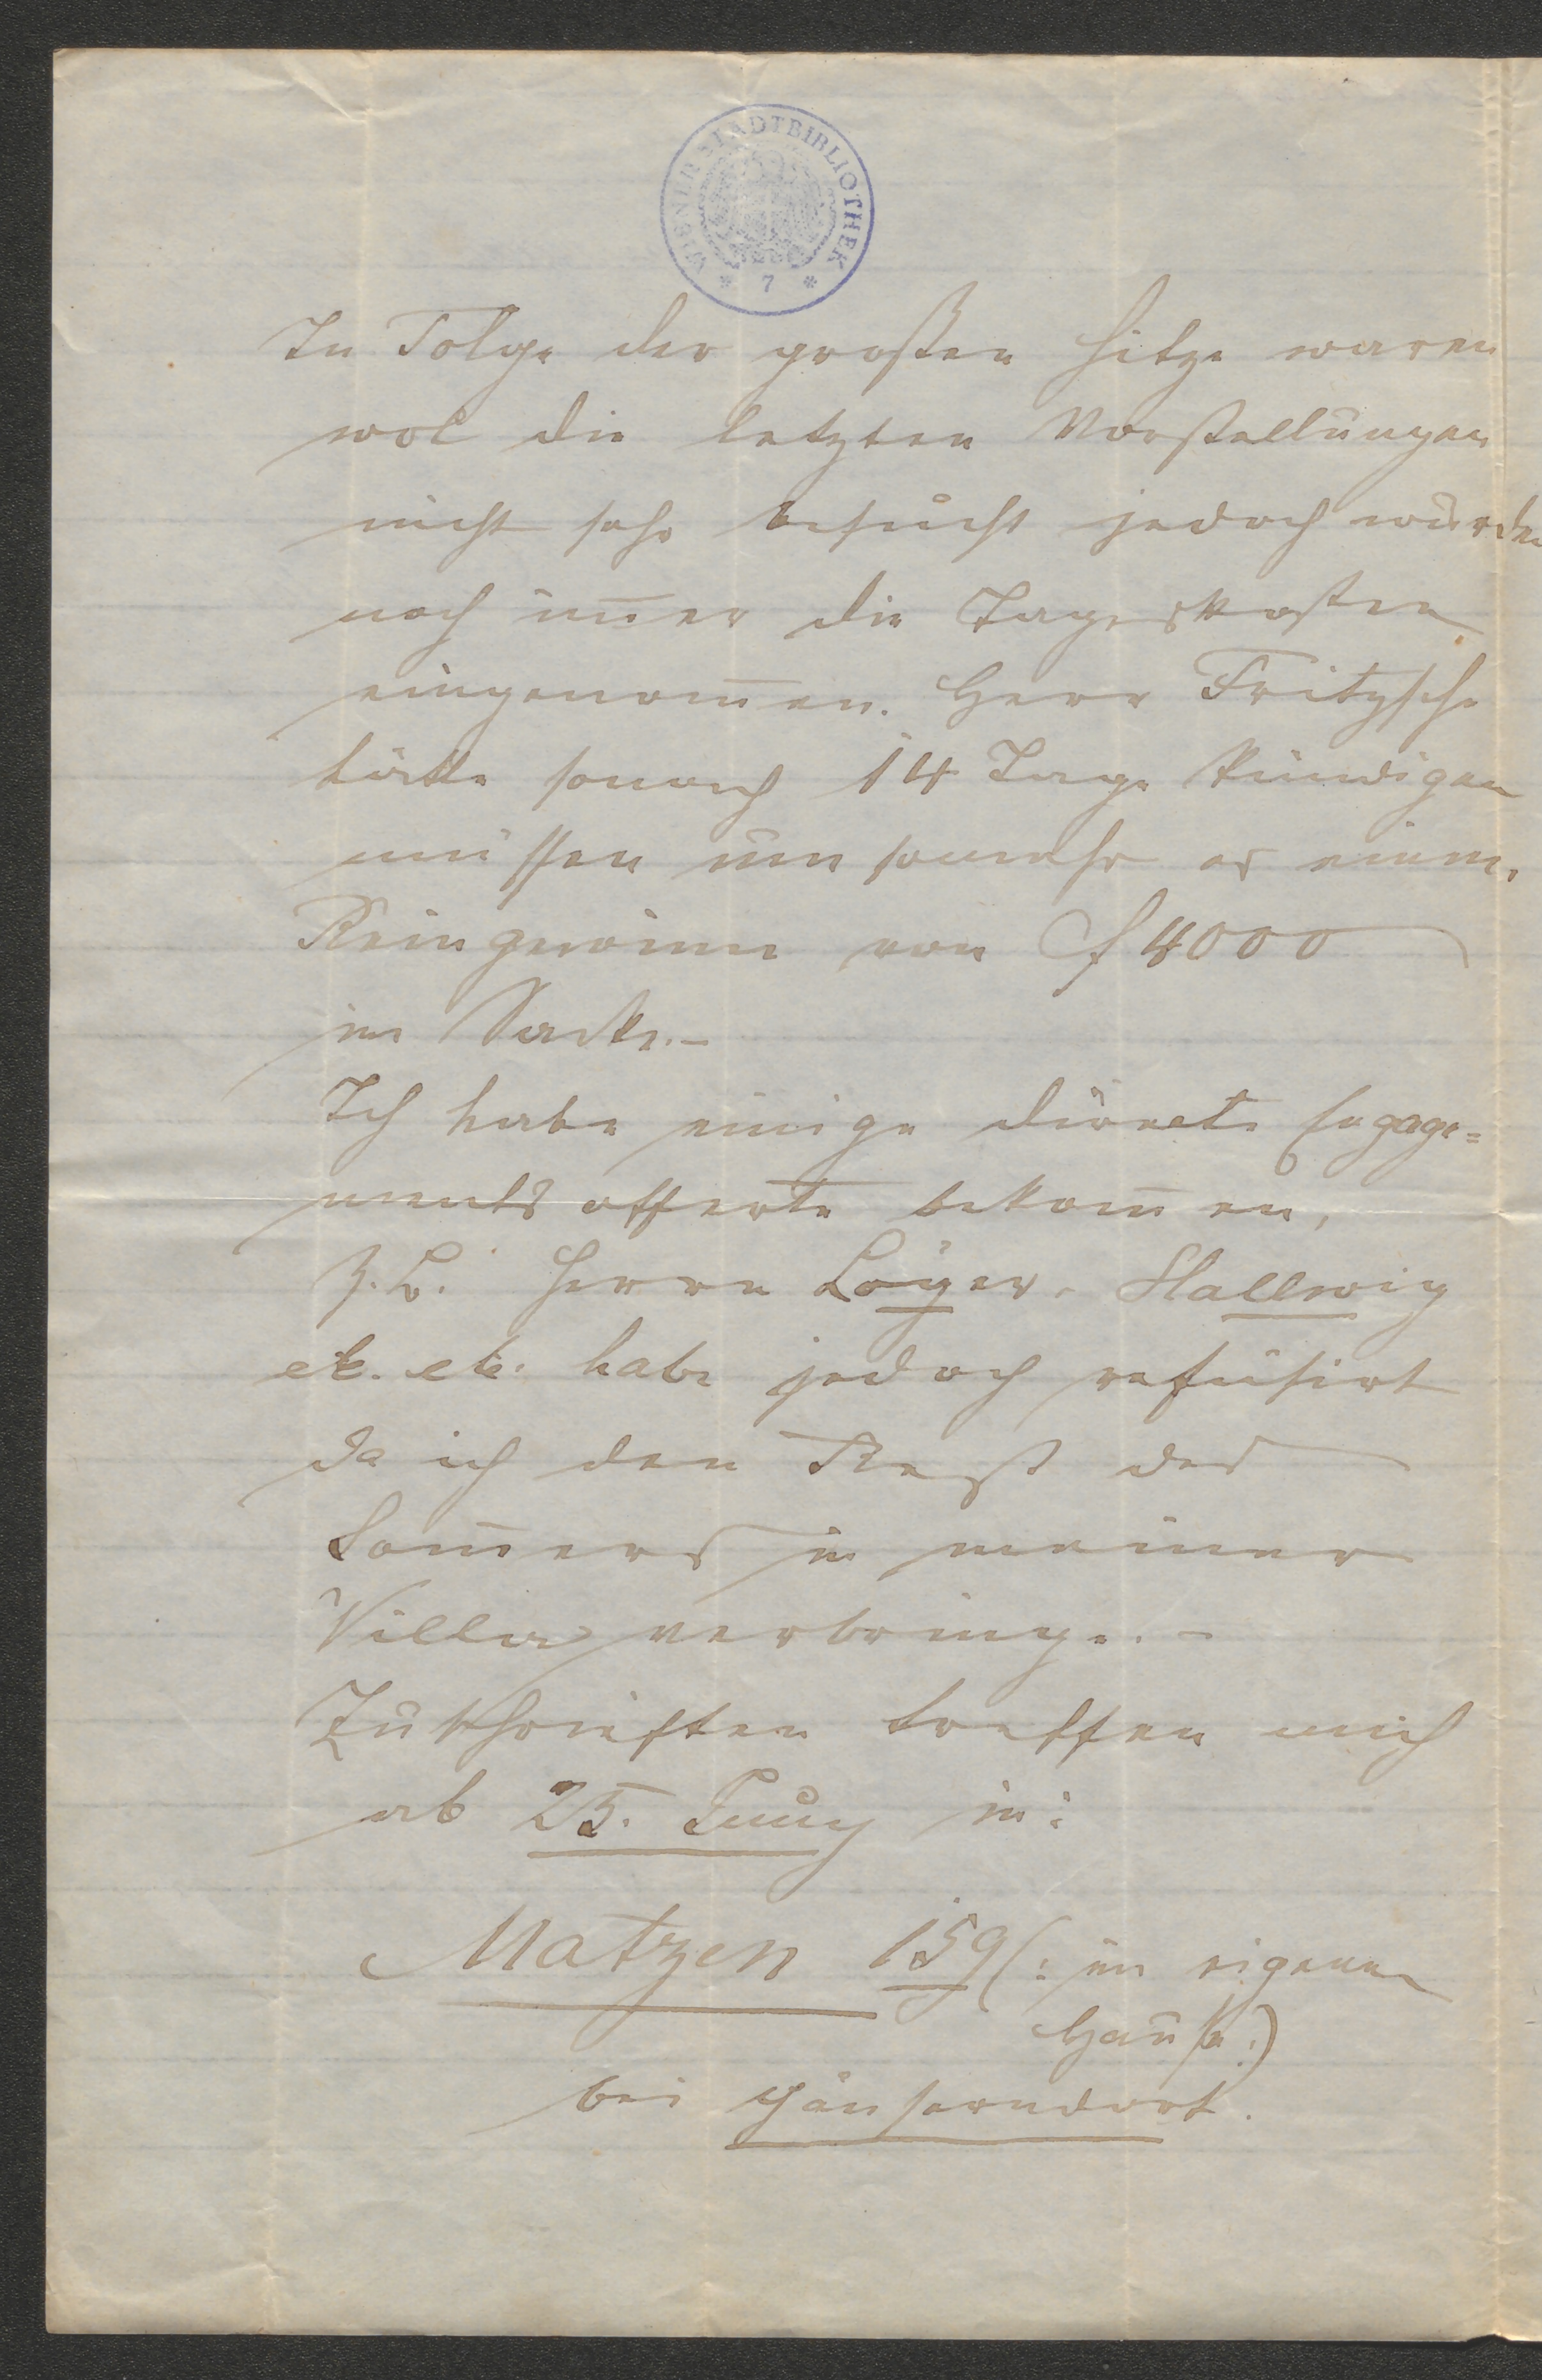 WIENER STADTBIBLIOTHEK
* 7 *
In Folge der großen Hitze waren
wol die letzten Vorstellungen
nicht sehr besucht jedoch wurden
noch im̅er die Tageskosten
eingenom̅en. Herr Fritzsche
hätte sonach 14 Tage kündigen
müssen um somehr er einen
Reingewinn von f 4000
im Sacke.–
Ich habe einige directe Engage=
mentsofferte bekom̅en,
z.B. Herrn Löger, Hallwig
etc. etc. habe jedoch refüsirt
da ich den Rest des
Som̅ers in meiner
Villa verbringe.–
Zuschriften treffen mich
ab 25. Juny in:
Matzen 159 (: im eigenen
Hause :)
bei Gänserndorf.